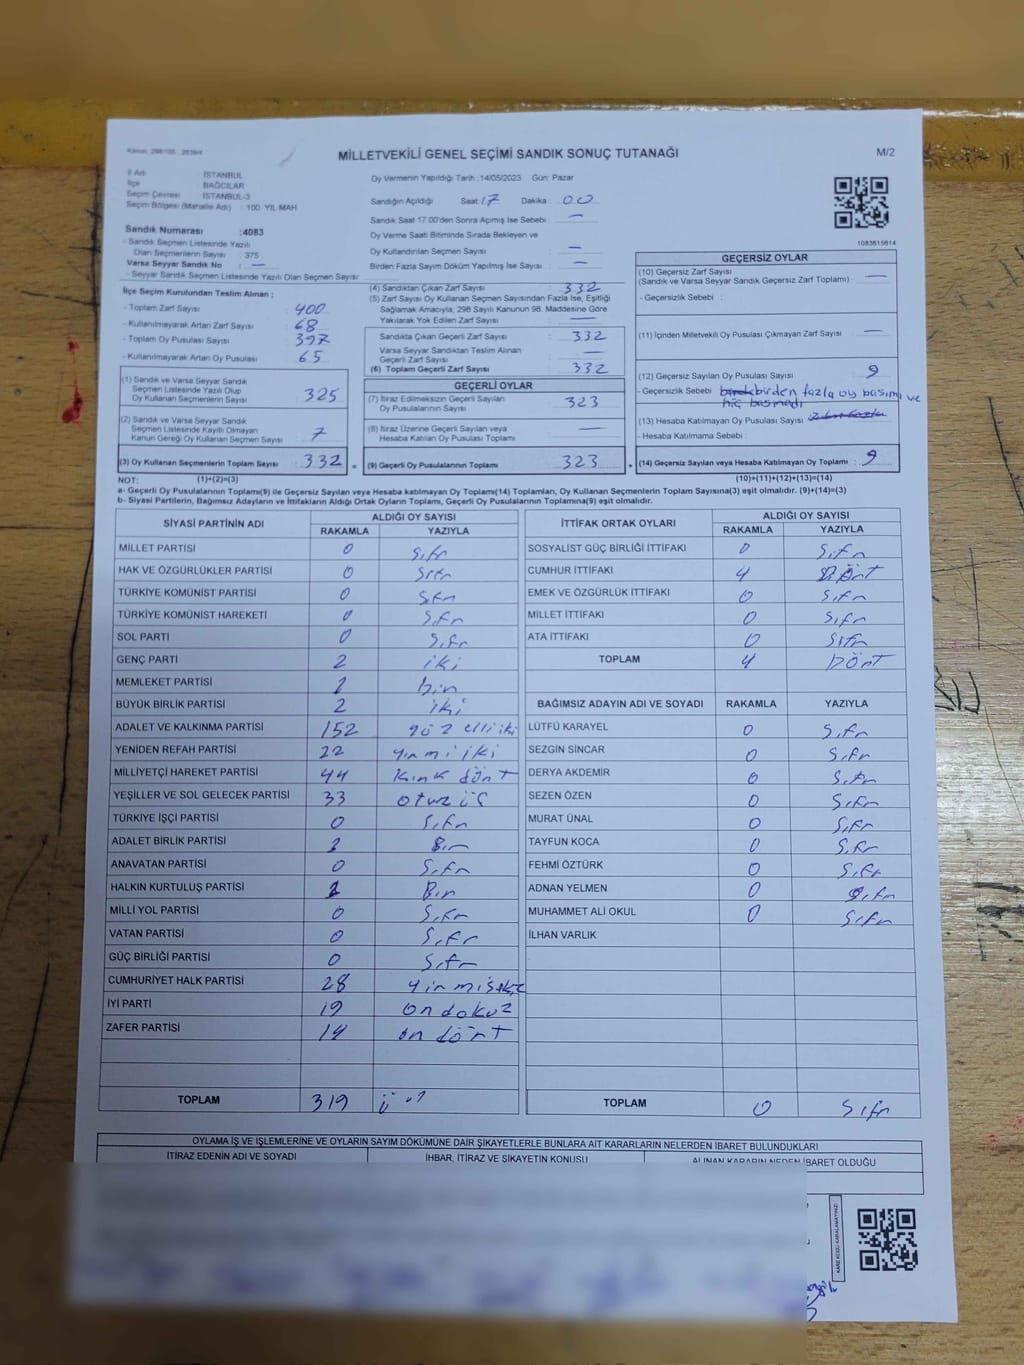 MİLLETVEKİLİ GENEL SEÇİMİ SANDIK SONUÇ TUTANAĞI
M/2
İl Adı İSTANBUL
İlçe BAĞCILAR
Seçim Çevresi İSTANBUL-3
Seçim Bölgesi (Mahalle Adı) : 100. YIL MAH
Sandık Numarası :4083
- Sandık Seçmen Listesinde Yazılı
Olan Seçmenlerin Sayısı 375
Varsa Seyyar Sandık No : —
- Seyyar Sandık Seçmen Listesinde Yazılı Olan Seçmen Sayısı:
Oy Vermenin Yapıldığı Tarih :14/05/2023 Gün: Pazar
Sandığın Açıldığı Saat: 17 Dakika : 00
Sandık Saat 17:00'den Sonra Açımış İse Sebebi : —
Oy Verme Saati Bitiminde Sırada Bekleyen ve
Oy Kullandırılan Seçmen Sayısı : —
Birden Fazla Sayım Döküm Yapılmış İse Sayısı : —
1083815614
İlçe Seçim Kurulundan Teslim Alınan ;
- Toplam Zarf Sayısı : 400
- Kullanılmayarak Artan Zarf Sayısı : 68
- Toplam Oy Pusulası Sayısı : 397
- Kullanılmayarak Artan Oy Pusulası : 65
(1) Sandık ve Varsa Seyyar Sandık
Seçmen Listesinde Yazılı Olup
Oy Kullanan Seçmenlerin Sayısı : 325
(2) Sandık ve Varsa Seyyar Sandık
Seçmen Listesinde Kayıtlı Olmayan
Kanun Gereği Oy Kullanan Seçmen Sayısı : 7
(3) Oy Kullanan Seçmenlerin Toplam Sayısı : 332
(4) Sandıktan Çıkan Zarf Sayısı : 332
(5) Zarf Sayısı Oy Kullanan Seçmen Sayısından Fazla İse, Eşitliği
Sağlamak Amacıyla, 298 Sayılı Kanunun 98. Maddesine Göre
Yakılarak Yok Edilen Zarf Sayısı : —
Sandıkta Çıkan Geçerli Zarf Sayısı : 332
Varsa Seyyar Sandıktan Teslim Alınan
Geçerli Zarf Sayısı : —
(6) Toplam Geçerli Zarf Sayısı : 332
GEÇERLİ OYLAR
(7) İtiraz Edilmeksizin Geçerli Sayılan
Oy Pusulalarının Sayısı : 323
(8) İtiraz Üzerine Geçerli Sayılan veya
Hesaba Katılan Oy Pusulası Toplamı : —
(9) Geçerli Oy Pusulalarının Toplamı : 323
GEÇERSİZ OYLAR
(10) Geçersiz Zarf Sayısı
(Sandık ve Varsa Seyyar Sandık Geçersiz Zarf Toplamı) : —
- Geçersizlik Sebebi :
(11) İçinden Milletvekili Oy Pusulası Çıkmayan Zarf Sayısı : —
(12) Geçersiz Sayılan Oy Pusulası Sayısı : 9
- Geçersizlik Sebebi : birden fazla oy basımı ve
hiç basmadı
(13) Hesaba Katılmayan Oy Pusulası Sayısı :
- Hesaba Katılmama Sebebi :
(14) Geçersiz Sayılan veya Hesaba Katılmayan Oy Toplamı : 9
NOT: (1)+(2)=(3) (10)+(11)+(12)+(13)=(14)
a- Geçerli Oy Pusulalarının Toplamı(9) ile Geçersiz Sayılan veya Hesaba katılmayan Oy Toplamı(14) Toplamları, Oy Kullanan Seçmenlerin Toplam Sayısına(3) eşit olmalıdır. (9)+(14)=(3)
b- Siyasi Partilerin, Bağımsız Adayların ve İttifakların Aldığı Ortak Oyların Toplamı, Geçerli Oy Pusulalarının Toplamına(9) eşit olmalıdır.
SİYASİ PARTİNİN ADI ALDIĞI OY SAYISI
RAKAMLA YAZIYLA
MİLLET PARTİSİ 0 Sıfır
HAK VE ÖZGÜRLÜKLER PARTİSİ 0 Sıfır
TÜRKİYE KOMÜNİST PARTİSİ 0 Sıfır
TÜRKİYE KOMÜNİST HAREKETİ 0 Sıfır
SOL PARTİ 0 Sıfır
GENÇ PARTİ 2 iki
MEMLEKET PARTİSİ 1 bir
BÜYÜK BİRLİK PARTİSİ 2 iki
ADALET VE KALKINMA PARTİSİ 152 yüz elli iki
YENİDEN REFAH PARTİSİ 22 yirmi iki
MİLLİYETÇİ HAREKET PARTİSİ 44 kırk dört
YEŞİLLER VE SOL GELECEK PARTİSİ 33 otuz üç
TÜRKİYE İŞÇİ PARTİSİ 0 Sıfır
ADALET BİRLİK PARTİSİ 1 Bir
ANAVATAN PARTİSİ 0 Sıfır
HALKIN KURTULUŞ PARTİSİ 1 Bir
MİLLİ YOL PARTİSİ 0 Sıfır
VATAN PARTİSİ 0 Sıfır
GÜÇ BİRLİĞİ PARTİSİ 0 Sıfır
CUMHURİYET HALK PARTİSİ 28 yirmi sekiz
İYİ PARTİ 19 on dokuz
ZAFER PARTİSİ 14 on dört
TOPLAM 319
İTTİFAK ORTAK OYLARI ALDIĞI OY SAYISI
RAKAMLA YAZIYLA
SOSYALİST GÜÇ BİRLİĞİ İTTİFAKI 0 Sıfır
CUMHUR İTTİFAKI 4 Dört
EMEK VE ÖZGÜRLÜK İTTİFAKI 0 Sıfır
MİLLET İTTİFAKI 0 Sıfır
ATA İTTİFAKI 0 Sıfır
TOPLAM 4 Dört
BAĞIMSIZ ADAYIN ADI VE SOYADI RAKAMLA YAZIYLA
LÜTFÜ KARAYEL 0 Sıfır
SEZGİN SİNCAR 0 Sıfır
DERYA AKDEMİR 0 Sıfır
SEZEN ÖZEN 0 Sıfır
MURAT ÜNAL 0 Sıfır
TAYFUN KOCA 0 Sıfır
FEHMİ ÖZTÜRK 0 Sıfır
ADNAN YELMEN 0 Sıfır
MUHAMMET ALİ OKUL 0 Sıfır
İLHAN VARLIK
TOPLAM 0 Sıfır
OYLAMA İŞ VE İŞLEMLERİNE VE OYLARIN SAYIM DÖKÜMÜNE DAİR ŞİKAYETLERLE BUNLARA AİT KARARLARIN NELERDEN İBARET BULUNDUKLARI
İTİRAZ EDENİN ADI VE SOYADI İHBAR, İTİRAZ VE ŞİKAYETİN KONUSU ALINAN KARARIN NEDEN İBARET OLDUĞU
KARE KODU KARALAMAYINIZ!